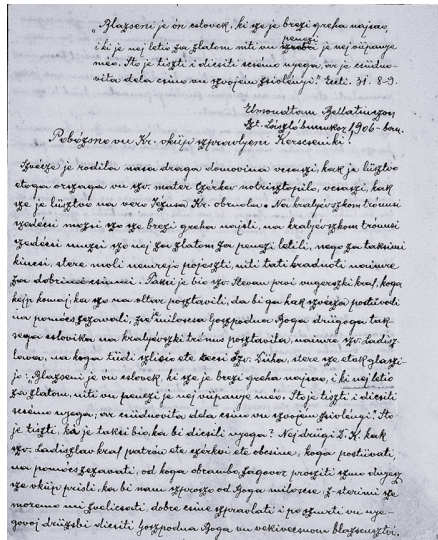 „Blazseni je ón cslovek, ki sze je brezi greha najsao,
i ki je nej leto za zlatom niti vu
penezi
je nej vüpanje
meo. Sto je tiszti i dicsiti csémo nyega, ar je csüdno-
vita dela csino vu szvojem zsivlenyi." Eccli. 31. 8-9.
Elmondtam Bellatinczon
Szt. László bucsukor, 1906-ban.
Pobózno vu Kr. vküp szpravljeni Kerscseniki!
je rodila nasa draga domovina vcsaszi, kak je lüsztvo
etoga orszaga vu szv. mater Czérkev notri sztopilo, vcsaszi, kak
sze je lüsztvo na vero Jezusa Kr. obrnolo. Na kralyévszkom trónusi
szedécsi mozsi szo sze brezi greha najsli, na kralyévszkom trónusi
szedécsi mozsi szo nej za zlatom za penezi letili, nego za taksimi
kincsi, stere moli nemrejo pojeszti, niti tati kradnoti najmre
za dobrimi csinmi. Taksi je bio szv. Stevan prvi vugerszki kral, koga
komaj, ka szo na oltar posztavili, da bi ga kak szvéczа postüvali
na pomócs zezávali, zse miloscsa Goszpodna Boga drügoga tak-
sega cslovika na kralyévszki trónus posztavila, najmre szv. Ladisz-
lava, na koga tüdi szlisio ete recsi Szv. Düha, stere sze etak glaszi-
jo: „Blazseni je ón cslovek, ki sze je brezi greha najsao, i ki nej leto
za zlatom, niti vu penezi je nej vüpanje meo. Sto je tiszti i dicsiti
csémo nyega, ar csüdnovita dela csino vu szvojem zsivlenyi." Sto
je tiszti, ki je taksi bio, ka bi dicsili nyega? Nej drügi D. K. kak
szv. Ladiszlav kral patron ete czérkvi ete obcsine, koga postüvati,
na pomócs zezávati, od koga obrambo, zagovor prosziti szmo dnesz
sze vküp prisli, ka bi nam szproszo od Boga miloscse, z-sterimi sze
moremo mi zvelicsati, dobre csine szpravlati i po szmrti vu nye-
govoj drüzsbi dicsiti Goszpodna Boga vu vekivecsnom blazsensztvi.